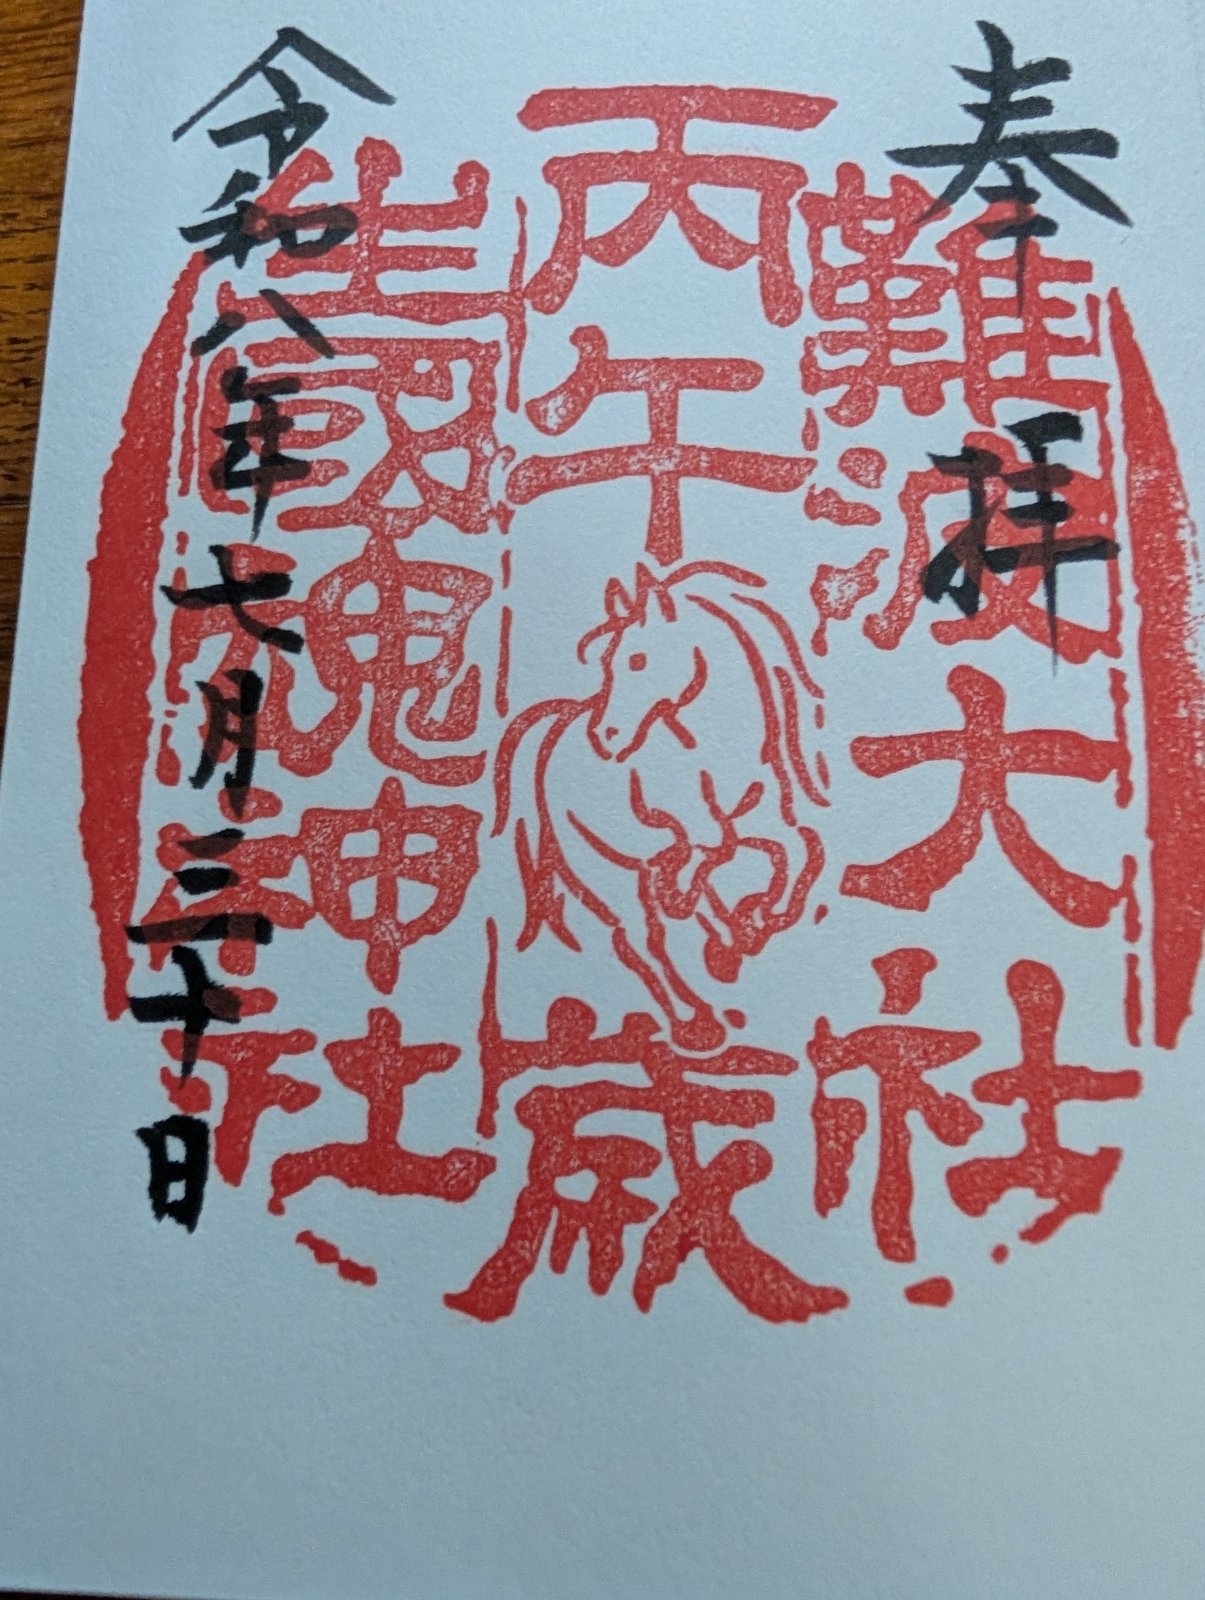 奉拝
難波大社
丙午歳
生國魂神社
令和八年七月三十日